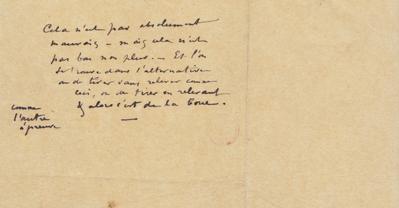 Cela n'est pas absolument
mauvais – mais cela n'est
pas bas non plus. – Et l'on
se trouve dans l'alternative
ou de tirer sans relever comme
ceci, ou de tirer en relevant
& alors c'est de la boue.
comme
l'autre
épreuve